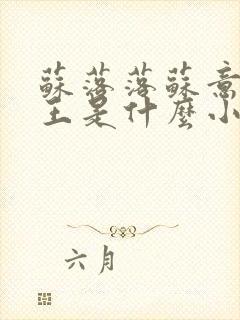 蘇落落蘇意
王是什麼小
六月